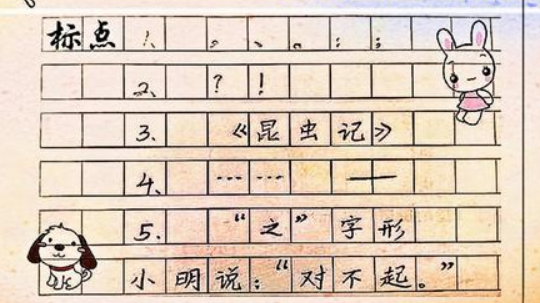 标点 1、 。、。：；
2、 ？ ！
3、《昆虫记》
4、 …… ——
5、“之”字形
小明说：“对不起。”